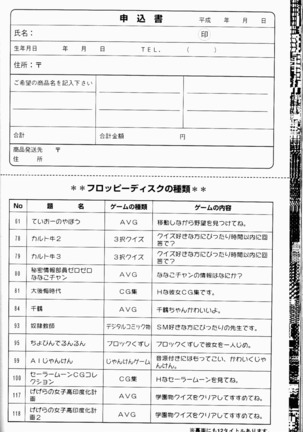 申込書
平成 年 月 日
氏名: 印
生年月日 年 月 日 TEL. ( )
住所:〒
ご希望の商品名を記入下さい
合計 合計金額 円
商品発送先 〒
住 所
**フロッピーディスクの種類**
No 題 名 ゲームの種類 ゲームの内容
61 ていおーのやぼう AVG 移動しながら野望を見つけてね。
78 カルトキ2 3択クイズ クイズ好きな方にぴったり時間以内に回答で?
79 カルトキ3 3択クイズ クイズ好きな方にぴったり時間以内に回答で?
80 秘密情報部員ゼロゼロななこチャン AVG ななこチャンの情報はなにか?
81 大後悔時代 CG集 Hな彼女CG集です。
84 千鶴 AVG 千鶴ちゃんかわいいよ。
93 奴隷教師 デジタルコミック物 SM好きな方にぴったりの先生です。
95 ちょびんでるふぁん ブロックくずし ブロックくずしで彼女を一人じめ。
99 AIじゃんけん じゃんけんゲーム 音源付きにはもってこい、かわいくじゃんけん。
100 セーラームーンCGコレクション CG集 Hなセーラームーンを見てね。
117 げげらの女子高印度化計画 AVG 学園物クイズをクリアしてすすめてね。
118 げげらの女子高印度化計画2 AVG 学園物クイズをクリアしてすすめてね。